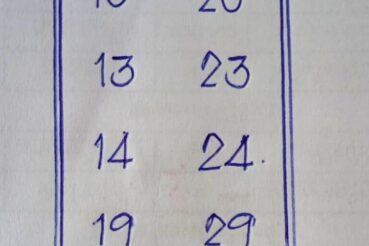 13 23
14 24.
19 29